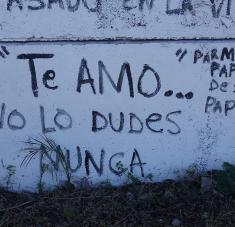 PASADO EN LA VI
"Te AMO...
NO LO DUDES
NUNCA
" PARM
PAP
DE S
PAP